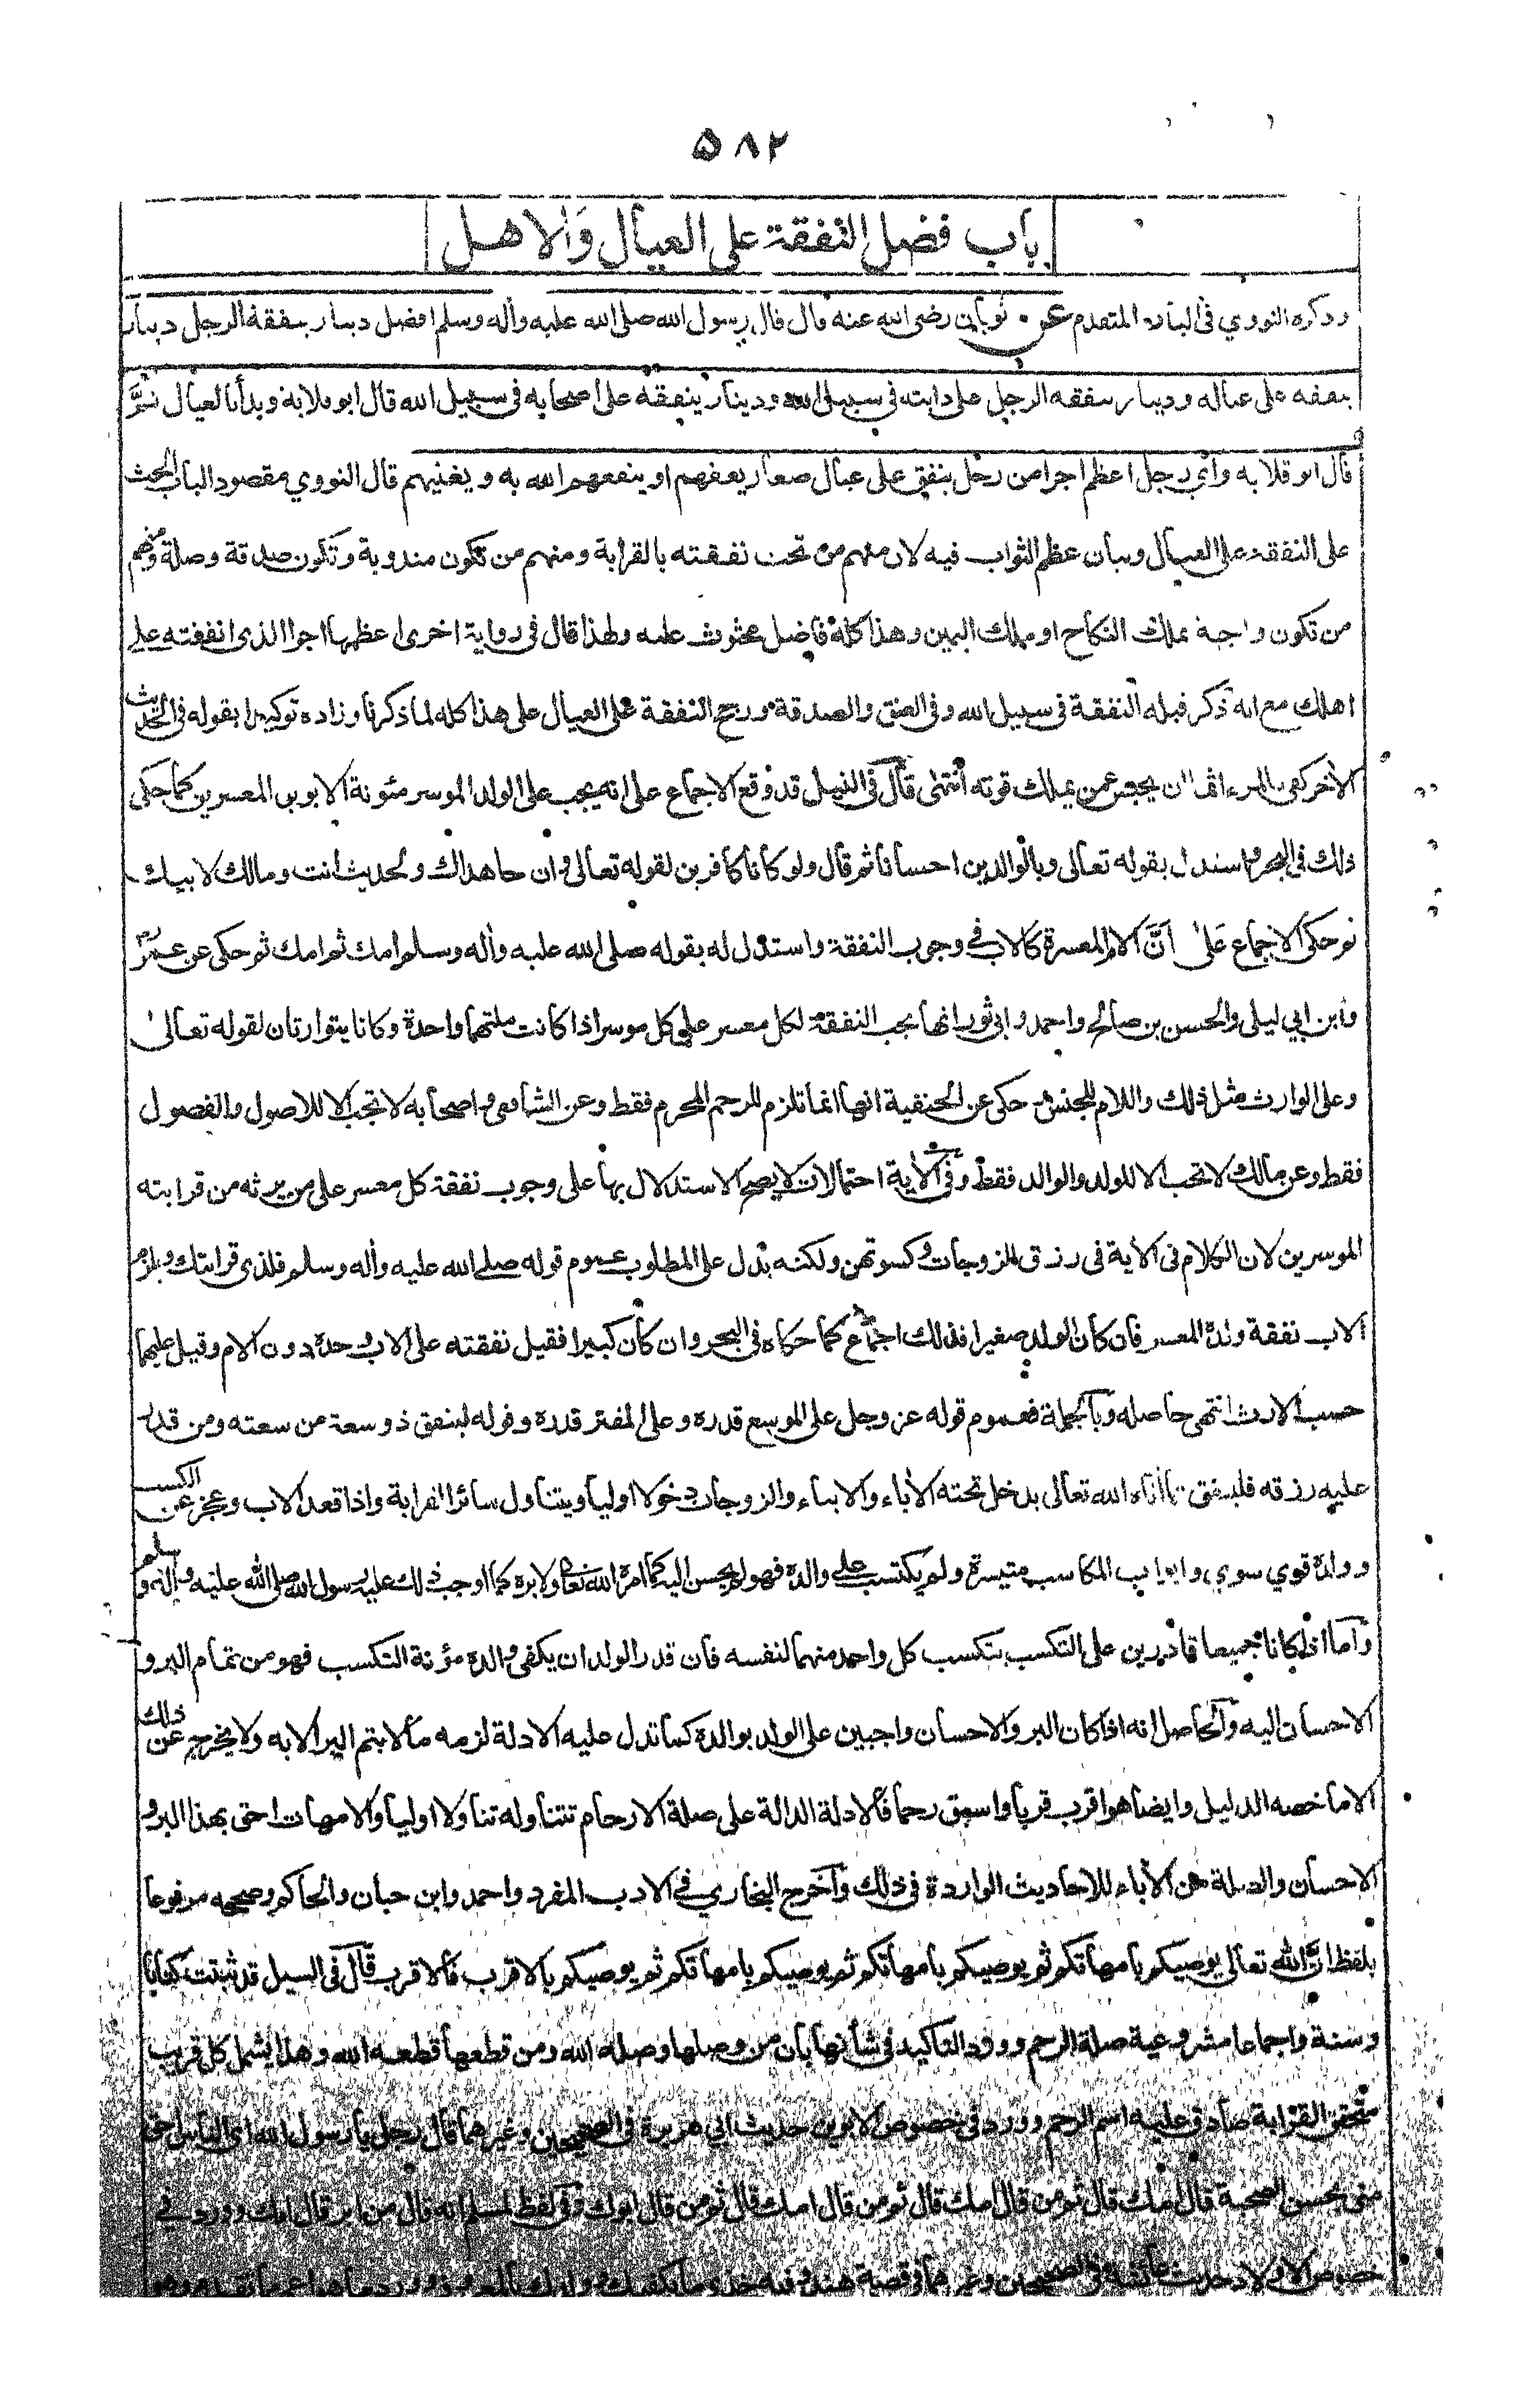 ۵۸۲
باب فضل النفقة على العيال والاهل
وذكره النووي فى الباب المتقدم عن ثوبان رضى الله عنه قال قال رسول الله صلى الله عليه واله وسلم افضل دينار ينفقه الرجل دينار
ينفقه على عياله ودينار ينفقه الرجل على دابته فى سبيل الله ودينار ينفقه على اصحابه فى سبيل الله قال ابو قلابة وبدأ بالعيال ثمَّ
قال ابو قلابه وأي رجل اعظم اجرا من رجل ينفق على عيال صغار يعفهم او ينفعهم الله به ويغنيهم قال النووي مقصود الباب الحث
على النفقة على العيال وبيان عظم الثواب فيه لان منهم من تجب نفقته بالقرابة ومنهم من تكون مندوبة وتكون صدقة وصلة ومنهم
من تكون واجبة بملك النكاح او ملك اليمين وهذا كله فاضل محثوث عليه ولهذا قال فى رواية اخرى اعظمها اجرا الذى انفقته على
اهلك مع انه ذكر قبله النفقة فى سبيل الله وفى العتق والصدقة ورجح النفقة على العيال على هذا كله لما ذكرنا وزاده توكيدا بقوله فى الحديث
الأخر كفى بالمرء اثما ان يحبس عمن يملك قوته انتهى قال فى النيل قد وقع الاجماع على انه يجب على الولد الموسر مئونة الابوين المعسرين كما حكى
ذلك فى البحر واستدل بقوله تعالى وبالوالدين احسانا ثم قال ولو كانا كافرين لقوله تعالى وان جاهداك ولحديث انت ومالك لابيك
ثم حكى الاجماع على أنَّ الام المعسرة كالاب فى وجوب النفقة واستدل له بقوله صلى الله عليه واله وسلم امك ثم امك ثم حكى عن عمر
وابن ابي ليلى والحسن بن صالح واحمد وابي ثور انها يجب النفقة لكل معسر على كل موسر اذا كانت ملتهما واحدة وكانا يتوارثان لقوله تعالى
وعلى الوارث مثل ذلك واللام للجنس حكى عن الحنفية انها انما تلزم للرحم المحرم فقط وعن الشافعى واصحابه لا تجب الا للاصول والفصول
فقط وعن مالك لا تجب الا للولد والوالد فقط وفى الأية احتمالات لا يصح الاستدلال بها على وجوب نفقة كل معسر على من يرثه من قرابته
الموسرين لان الكلام فى الأية فى رزق الزوجات وكسوتهن ولكنه يدل على المطلوب عموم قوله صلى الله عليه واله وسلم فلذى قرابتك ويلزم
الاب نفقة ولده المعسر فان كان الولد صغيرا فذلك اجماع كما حكاه فى البحر وان كان كبيرا فقيل نفقته على الاب وحده دون الام وقيل عليهما
حسب الارث انتهى حاصله وبالجملة فعموم قوله عز وجل على الموسع قدره وعلى المقتر قدره وقوله لينفق ذو سعة من سعته ومن قدر
عليه رزقه فلينفق مما أتاه الله تعالى يدخل تحته الأباء والابناء والزوجات دخولا اوليا ويتناول سائر القرابة واذا قعد الاب وعجز عن الكسب
وولده قوي سوي وابواب المكاسب متيسرة ولم يكتسب على والده فهو لم يحسن اليه كما امره الله تعالى ولا بره كما اوجب ذلك عليه رسول الله صلى الله عليه وأله وسلم
وأما اذا كانا جميعا قادرين على التكسب يتكسب كل واحد منهما لنفسه فان قدر الولد ان يكفى والده مؤنة التكسب فهو من تمام البر و
الاحسان اليه والحاصل انه اذا كان البر والاحسان واجبين على الولد بوالده كما تدل عليه الادلة لزمه مالا يتم البر الا به ولا يخرج عن ذلك
الا ما خصه الدليل وايضا هو اقرب قريبا واسبق رحما فالادلة الدالة على صلة الارحام تتناوله تناولا اوليا والامهات احق بهذا البر و
الاحسان والصلة من الأباء للاحاديث الواردة فى ذلك واخرج البخاري فى الادب المفرد واحمد وابن حبان والحاكم وصححه مرفوعا
بلفظ انَّ الله تعالى يوصيكم بامهاتكم ثم يوصيكم بامهاتكم ثم يوصيكم بامهاتكم ثم يوصيكم بالاقرب فالاقرب قال فى السيل قد ثبتت كتابا
وسنة واجماعا مشروعية صلة الرحم وورد التاكيد فى شأنها بان من وصلها وصله الله ومن قطعها قطعه الله وهذا يشمل كل قريب
متحقق القرابة صادق عليه اسم الرحم وورد فى خصوص الابوين حديث ابي هريرة فى الصحيحين وغيرهما قال رجل يا رسول الله اى الناس احق
منى بحسن الصحبة قال امك قال ثم من قال امك قال ثم من قال امك قال ثم من قال ابوك وفى لفظ لمسلم انه قال من ابر قال امك وورد فى
خصوص الاولاد حديث عائشة فى الصحيحين وغيرهما فى قصة هند وفيه خذى ما يكفيك وولدك بالمعروف وورد ما هو اعم مما تقدم وهو